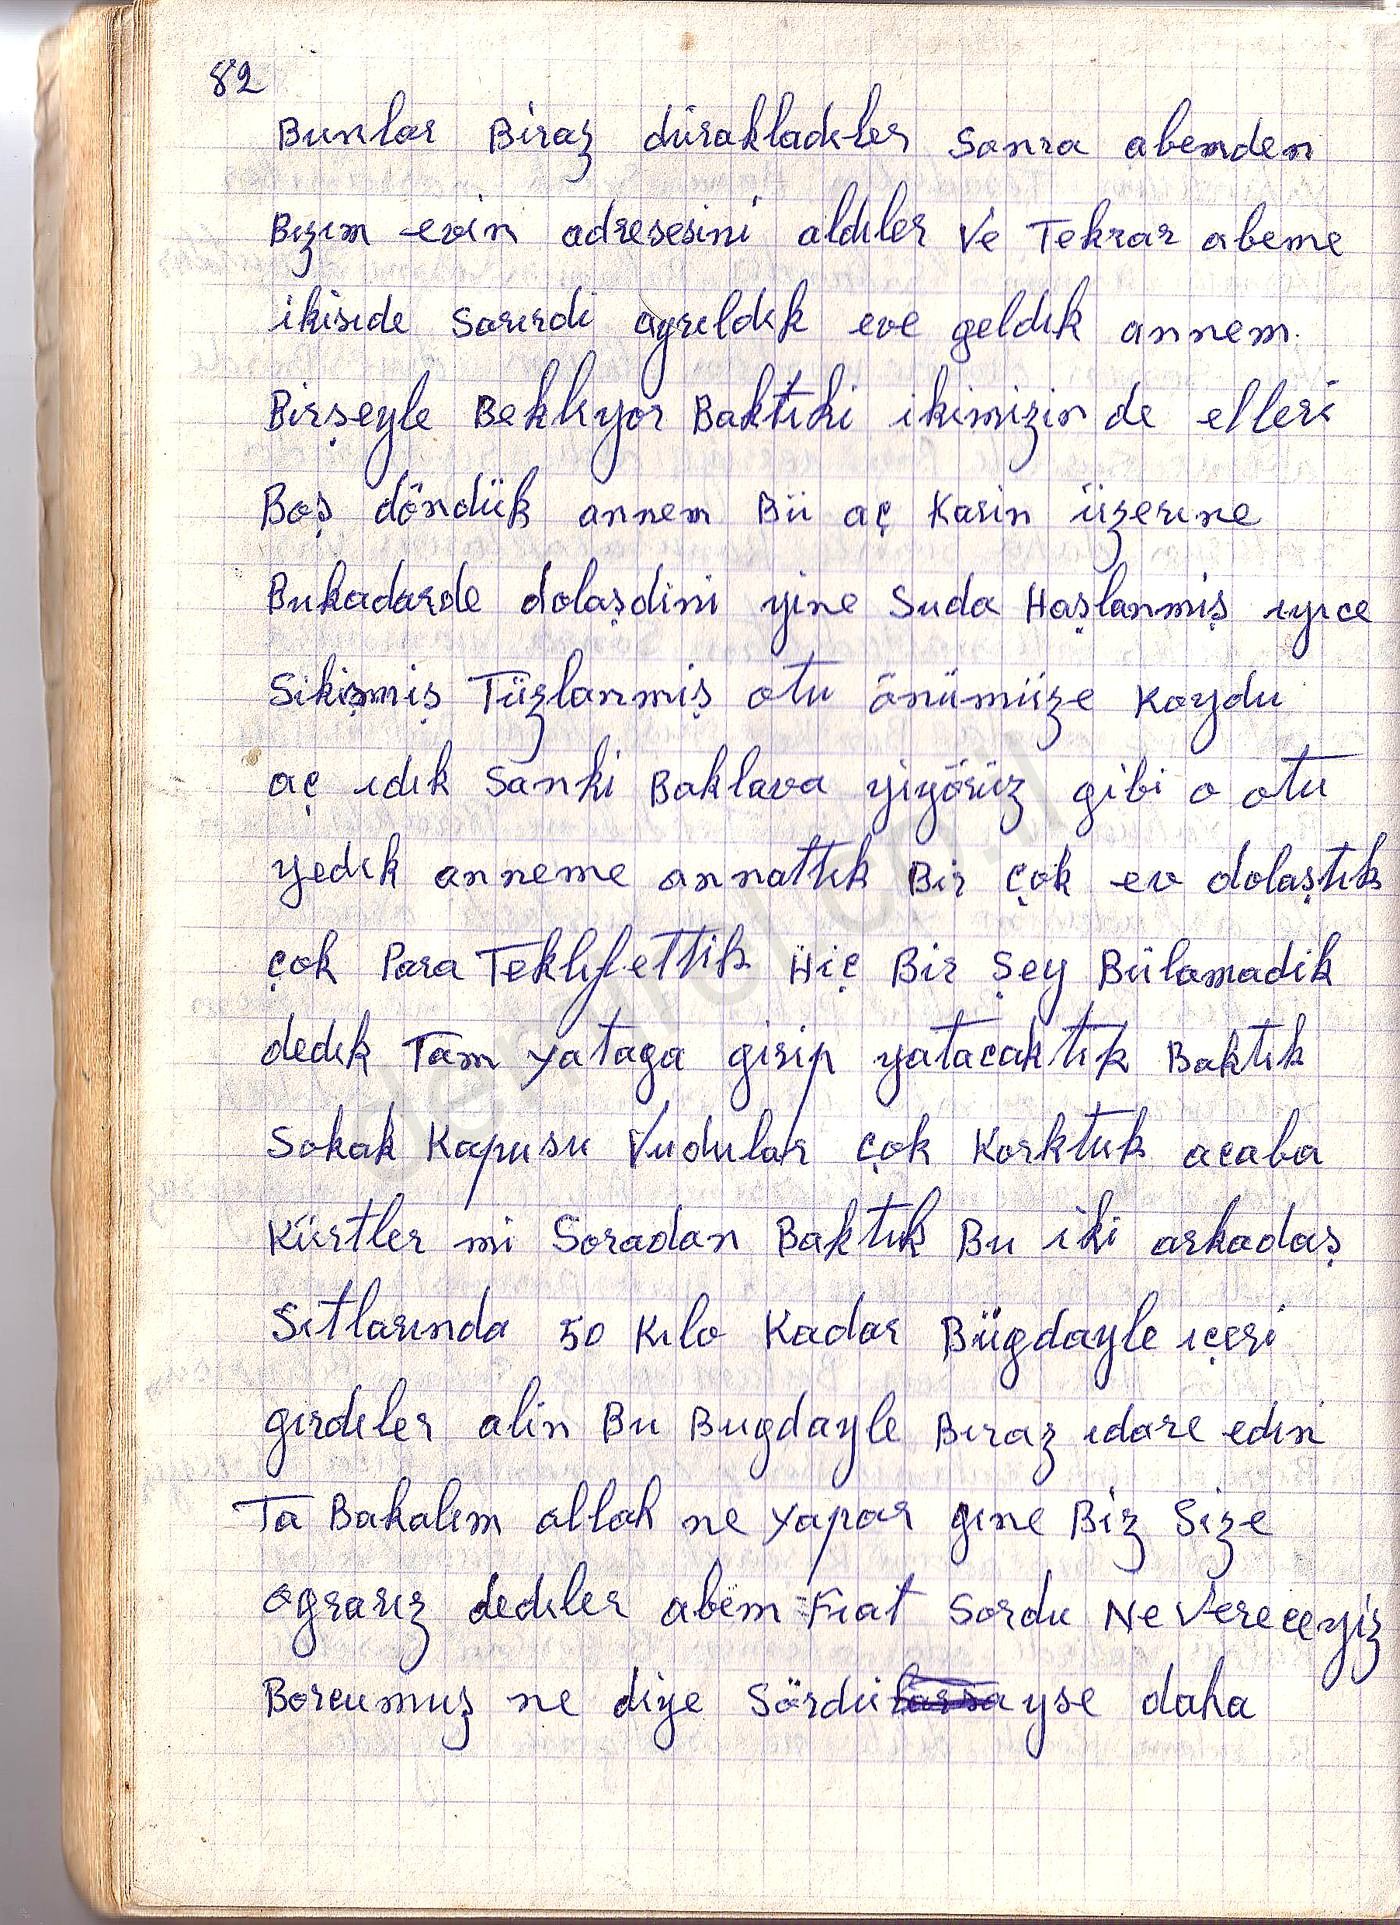 82
Bunlar Biraz dürakladıler Sonra abemden
Bızım evin adresesini aldıler Ve Tekrar abeme
ikiside Sarırdi ayrıldık eve geldık annem.
Birşeyle Beklıyor Baktıki ikimizin de elleri
Boş döndük annem Bü aç Karin üzerıne
Bukadarde dolaşdini yine Suda Haşlanmiş ıyıce
Sikişmiş Tüzlanmiş otu önümüze Koydu
aç ıdık Sanki Baklava yiyörüz gibi o otu
yedık anneme annattık Bir çok ev dolaştık
çok Para Teklıfettik Hiç Bir Şey Bülamadik
dedık Tam yataga girip yatacaktık Baktık
Sokak Kapusu Vudular çok Korktuk acaba
Kürtler mi Soradan Baktık Bu iki arkadaş
Sıtlarında 50 Kılo Kadar Bügdayle ıçeri
gırdıler alin Bu Bugdayle Bıraz ıdare edın
Ta Bakalım allah ne yapar gıne Biz Size
ograrız dedıler abem Fıat Sordu Ne Vereceyiz
Borcumuş ne diye Sördü yse daha
demirel.co.il